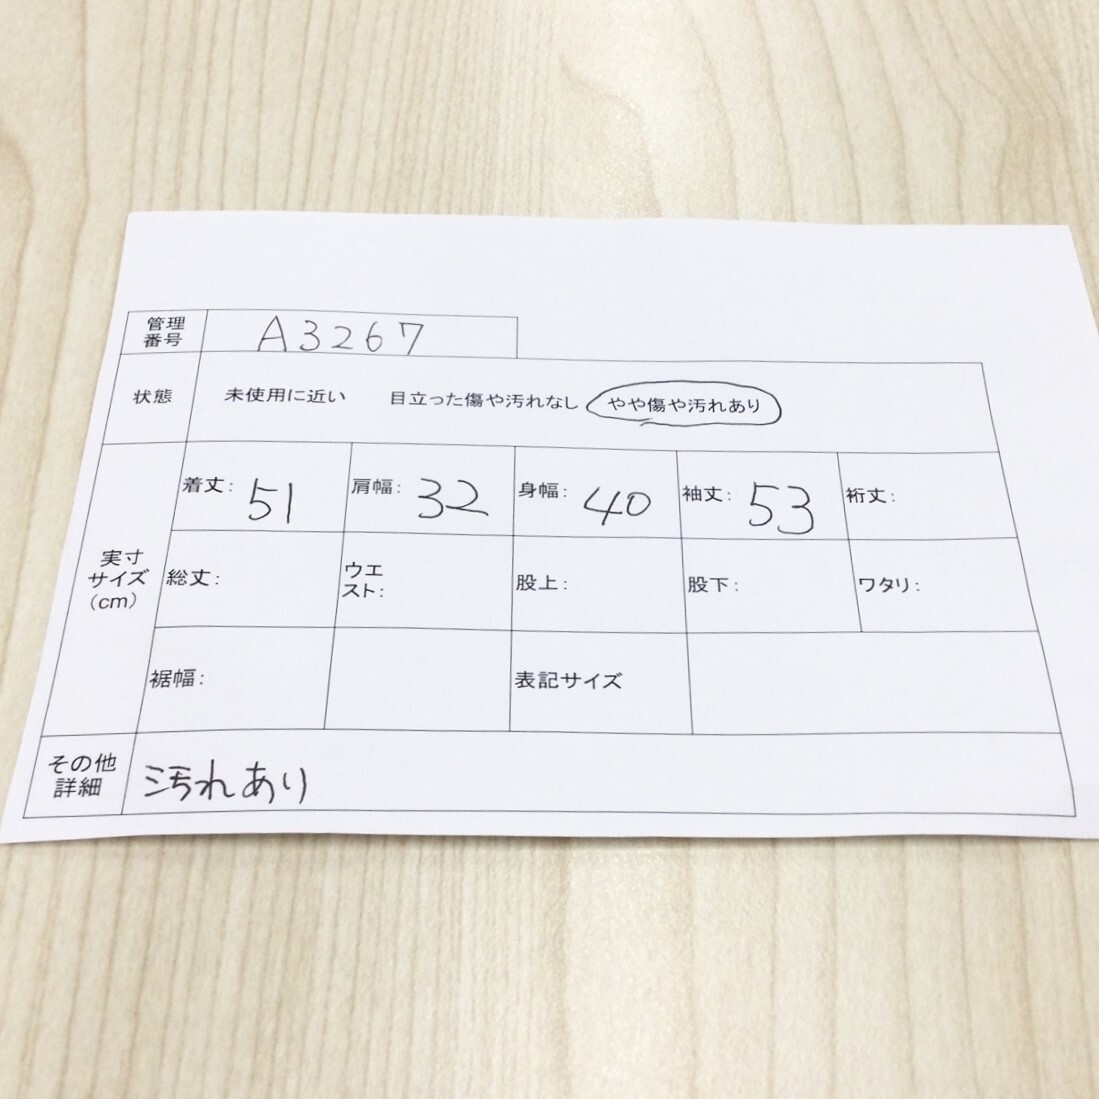 管理
番号
A3267
状態
未使用に近い 目立った傷や汚れなし やや傷や汚れあり
実寸
サイズ
(cm)
着丈: 51 肩幅: 32 身幅: 40 袖丈: 53 裄丈:
総丈: ウエ
スト: 股上: 股下: ワタリ:
裾幅: 表記サイズ
その他
詳細
汚れあり